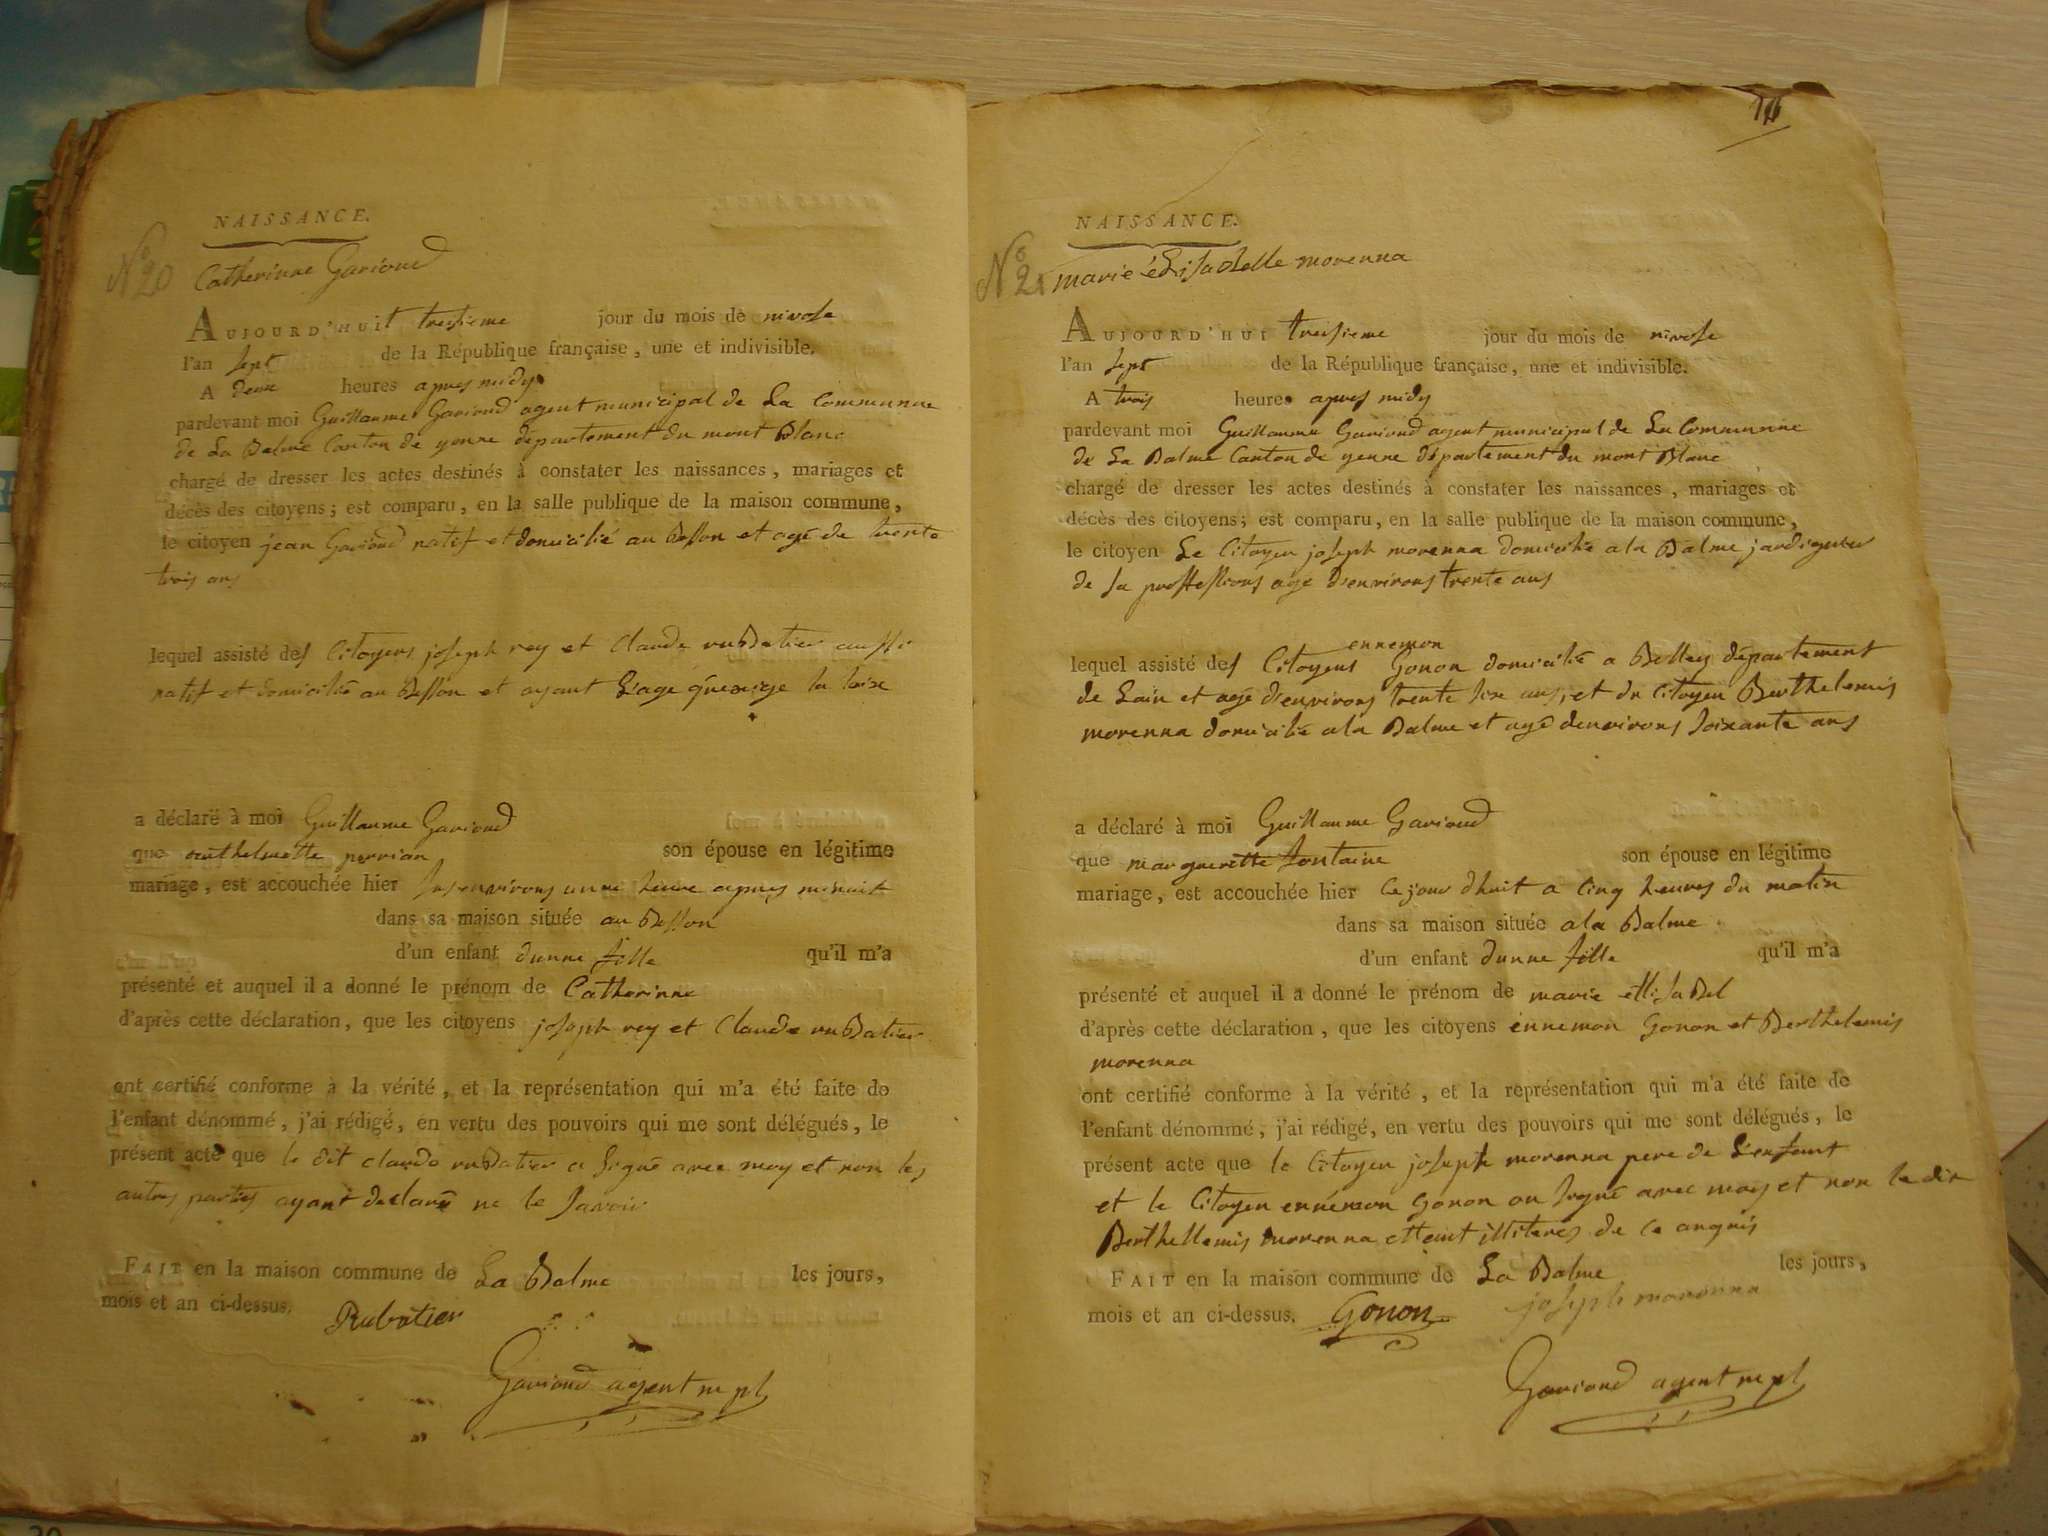 NAISSANCE.
N° 20 Catherinne Gavioud
AUJOURD'HUIt tresieme jour du mois de nivose
l'an sept de la République française, une et indivisible.
A deux heures apres midy
pardevant moi Guillaume Gavioud agent municipal de La Commune
de La Balme Canton de yenne département du mont Blanc
chargé de dresser les actes destinés à constater les naissances, mariages et
décès des citoyens; est comparu, en la salle publique de la maison commune,
le citoyen jean Gavioud natif et domicilié au Besson et agé de trente
trois ans
lequel assisté des Citoyens joseph rey et Claude ruBatier aussi
natif et domicilié au Besson et ayant L'age q'uexige la loix
a déclaré à moi Guillaume Gavioud
que perrian son épouse en légitime
mariage, est accouchée hier environs unne heure apres minuit
dans sa maison située au Besson
d'un enfant dunne fille qu'il m'a
présenté et auquel il a donné le prénom de Catherinne
d'après cette déclaration, que les citoyens joseph rey et Claude ruBatier
ont certifié conforme à la vérité, et la représentation qui m'a été faite de
l'enfant dénommé, j'ai rédigé, en vertu des pouvoirs qui me sont délégués, le
présent acte que le dit claude ruBatier a signé avec moy et non les
autres parties ayant declaré ne le savoir
FAIT en la maison commune de La Balme les jours,
mois et an ci-dessus.
Rubatier
Gavioud agent mpl
NAISSANCE.
N° 21 marie morenna
AUJOURD'HUI treisieme jour du mois de nivose
l'an sept de la République française, une et indivisible.
A trois heures apres midy
pardevant moi Guillaume Gavioud agent municipal de La Commune
de La Balme Canton de yenne département du mont Blanc
chargé de dresser les actes destinés à constater les naissances, mariages et
décès des citoyens; est comparu, en la salle publique de la maison commune,
le citoyen Le Citoyen joseph morenna domicilié a la Balme
de sa agé d'environs trente ans
ennemon
lequel assisté des Citoyens Gonon domicilié a Belley département
de Lain et agé d'environs trente six ans, et du Citoyen Berthelemis
morenna domicilié a la Balme et agé denvirons soixante ans
a déclaré à moi Guillaume Gavioud
que marguerette fontaine son épouse en légitime
mariage, est accouchée hier ce jour dhuit a cinq heures du matin
dans sa maison située a la Balme
d'un enfant dunne fille qu'il m'a
présenté et auquel il a donné le prénom de marie ellisaBel
d'après cette déclaration, que les citoyens ennemon Gonon et Berthelemis
morenna
ont certifié conforme à la vérité, et la représentation qui m'a été faite de
l'enfant dénommé, j'ai rédigé, en vertu des pouvoirs qui me sont délégués, le
présent acte que le Citoyen joseph morenna pere de L'enfant
et le Citoyen ennémon Gonon on signé avec moy et non le dit
Berthellemis morenna de ce
FAIT en la maison commune de La Balme les jours,
mois et an ci-dessus. Gonon joseph morenna
Gavioud agent mpl